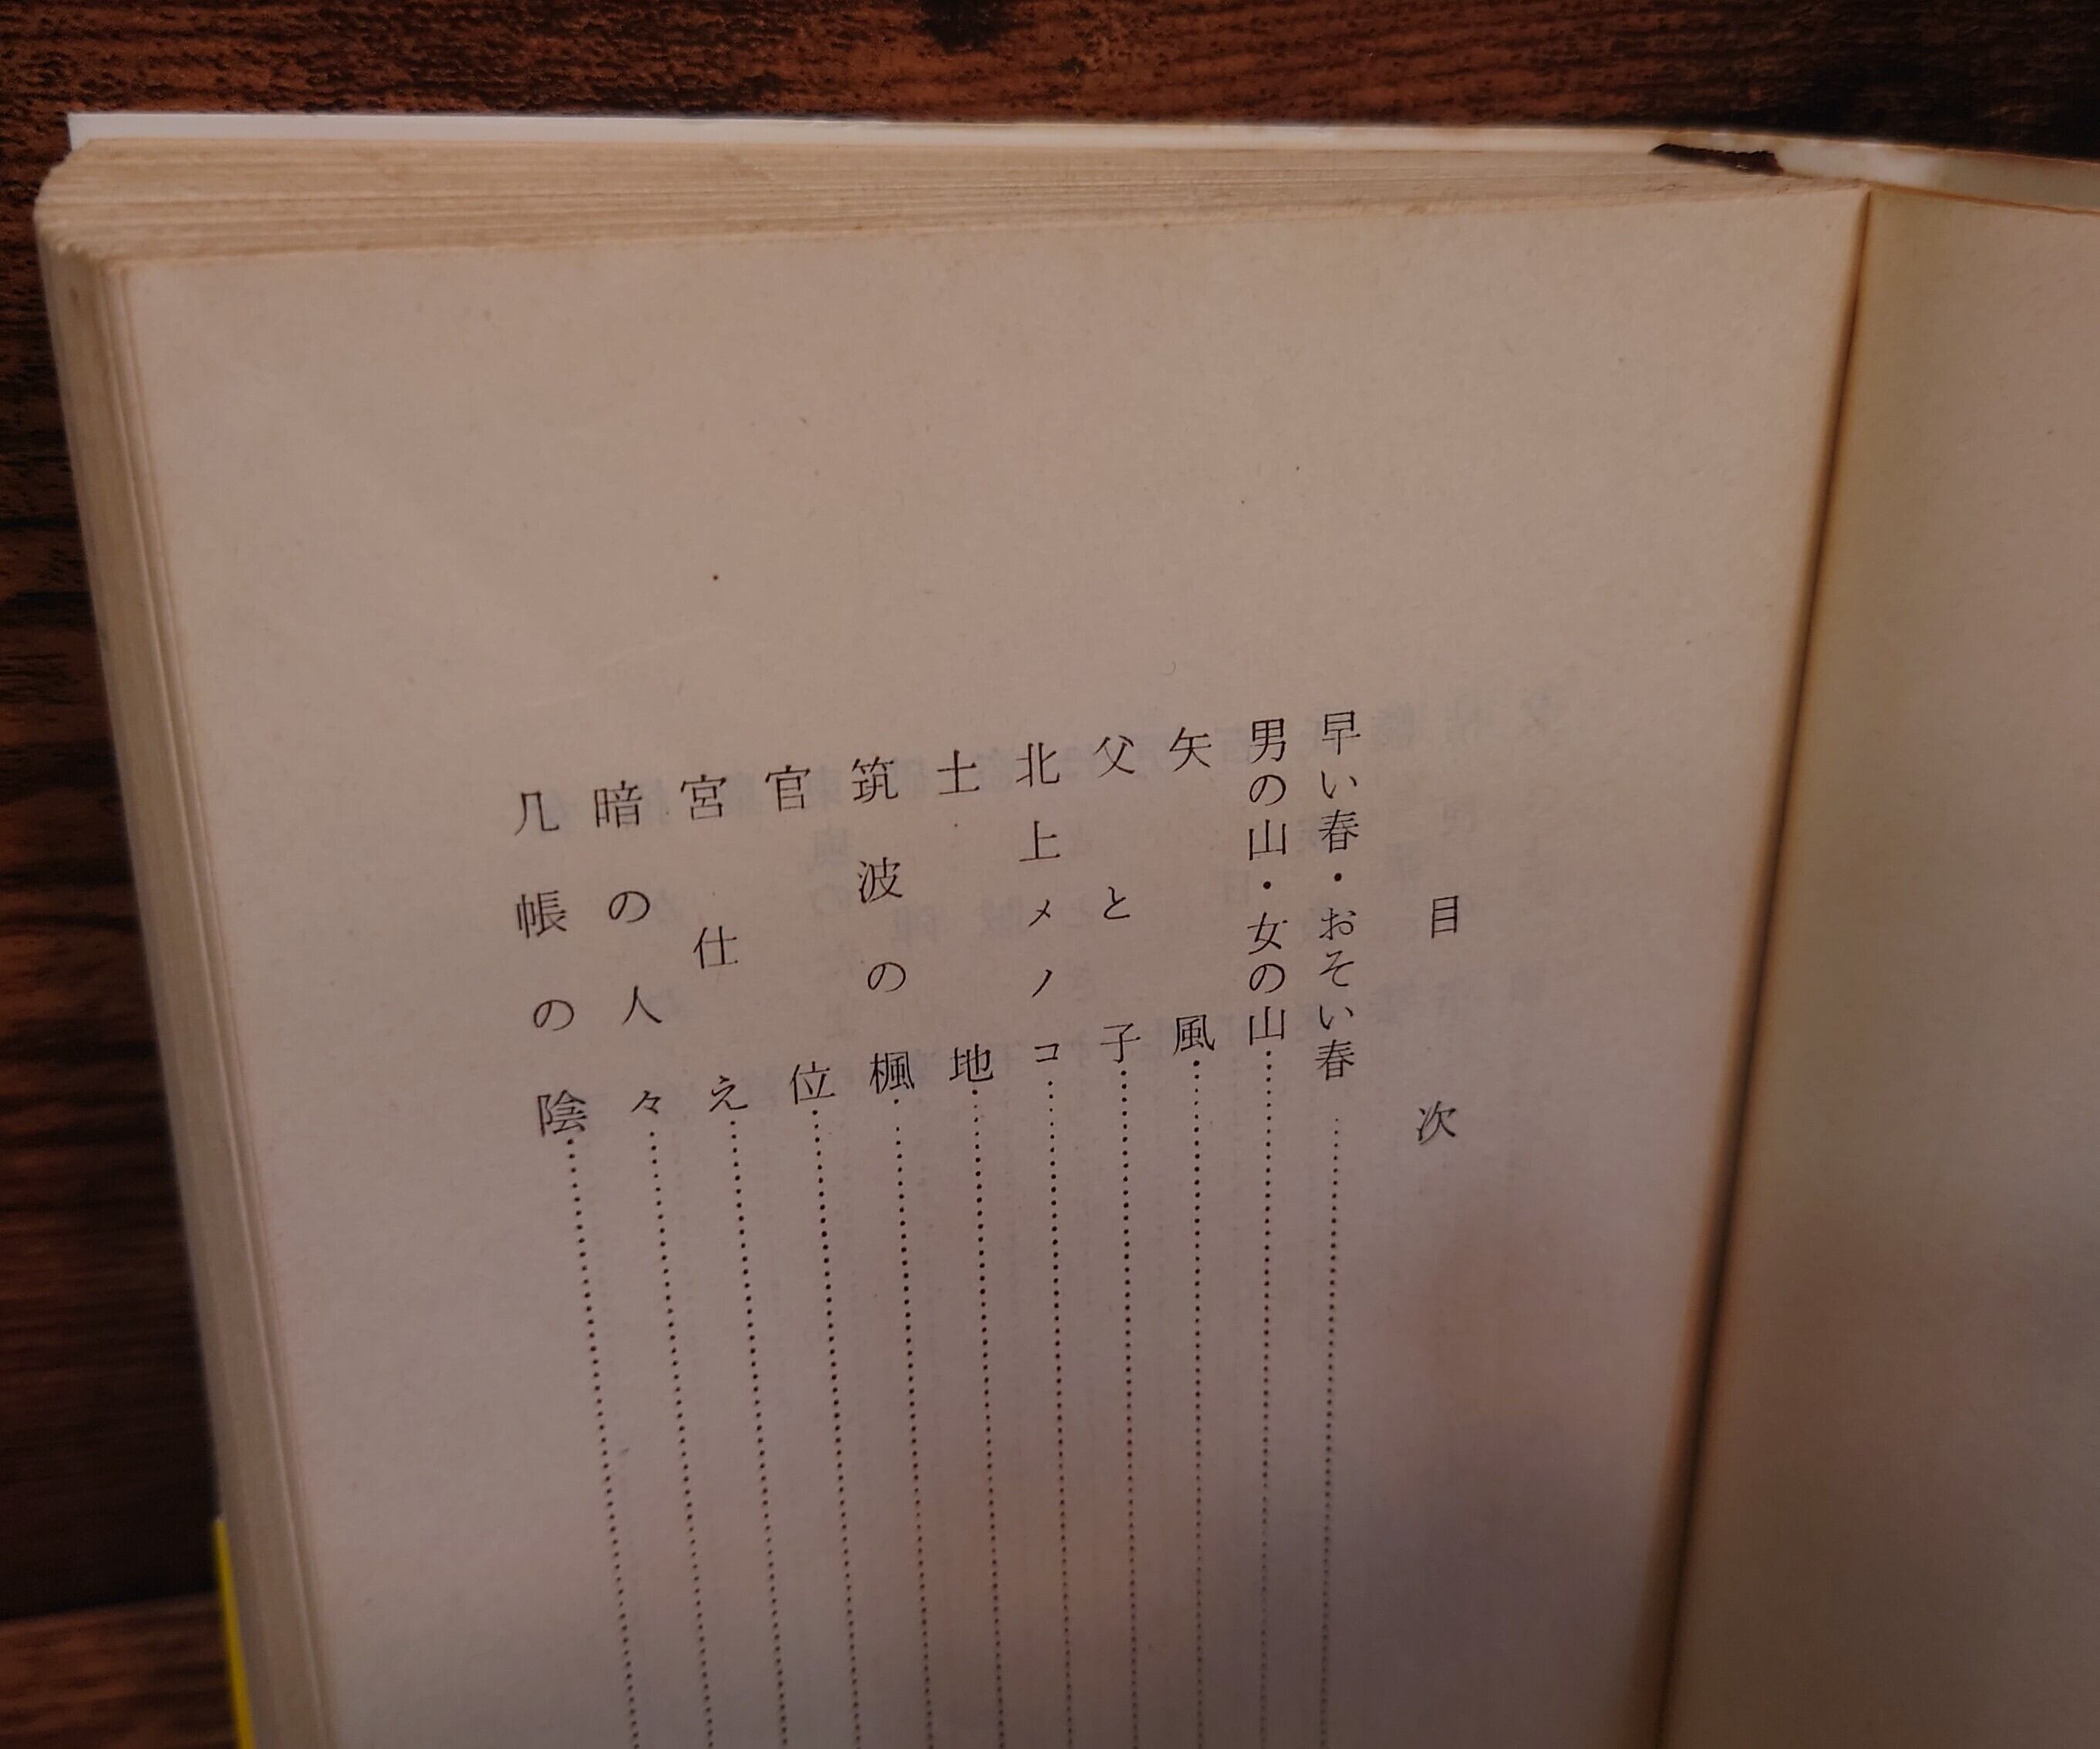 目次
早い春・おそい春
男の山・女の山
矢風
父と子
北上メノコ
士地
筑波の楓
官位
宮仕え
暗の人々
几帳の陰